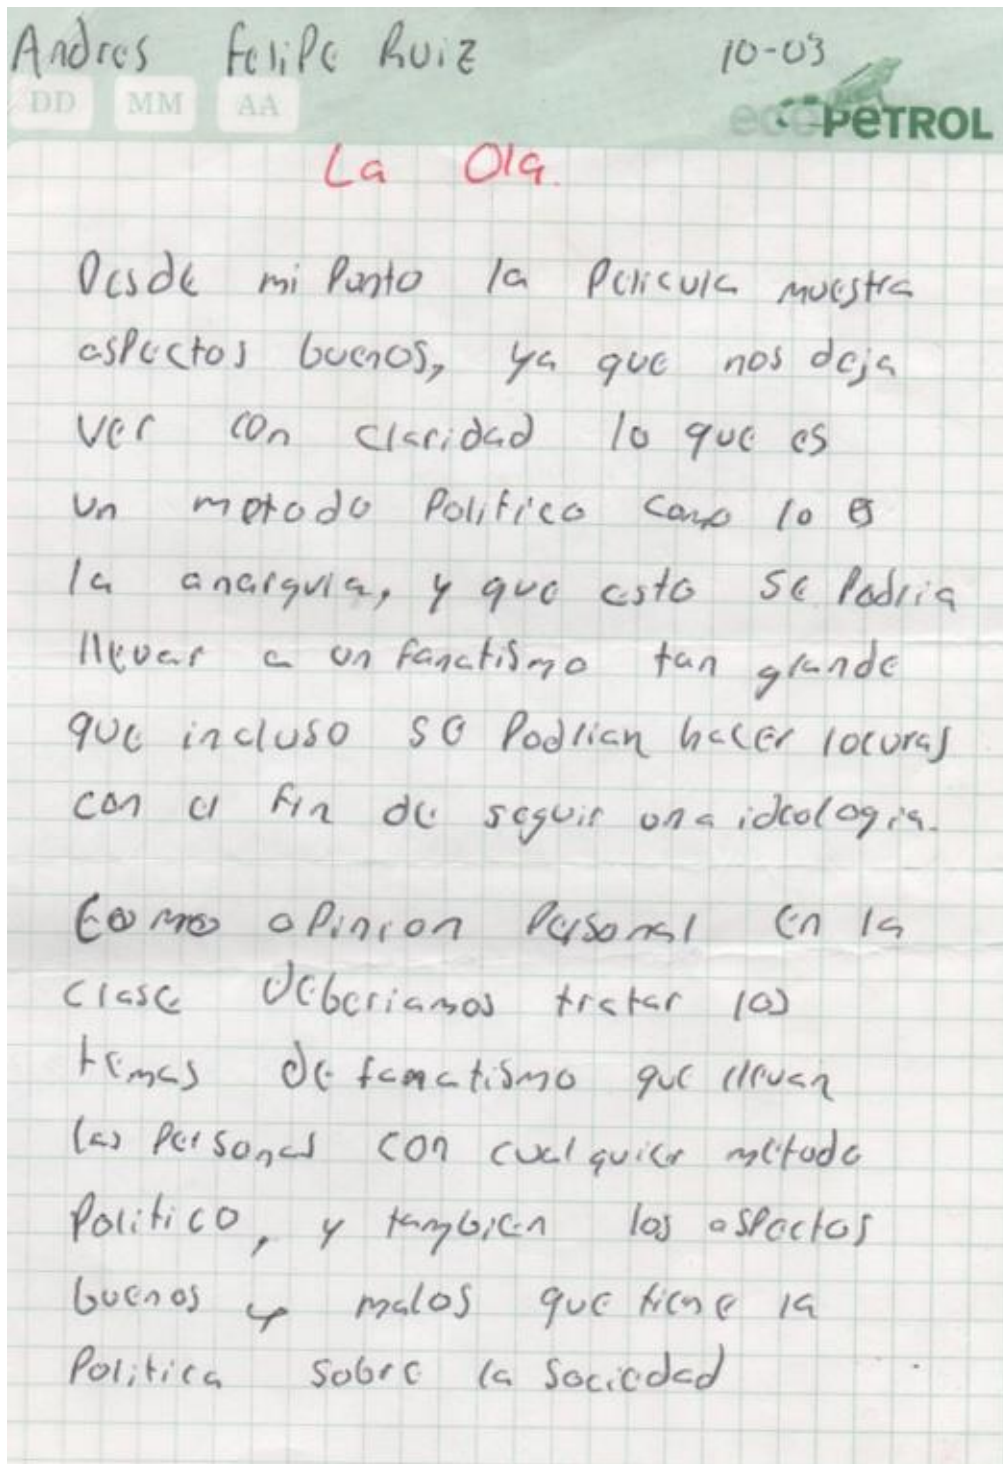 Andres Felipe Ruiz 10-03
DD MM AA
ecoPETROL
La Ola.
Desde mi Punto la Pelicula muestra
aspectos buenos, ya que nos deja
ver con claridad lo que es
un metodo Politico como lo es
la anarquia, y que esto se Podria
llevar a un fanatismo tan grande
que incluso se Podrian hacer locuras
con el fin de seguir una ideologia.
Como opinion Personal en la
clase deberiamos tratar los
temas de fanatismo que llevan
las Personas con cualquier metodo
Politico, y tambien los aspectos
buenos y malos que tiene la
Politica sobre la Sociedad